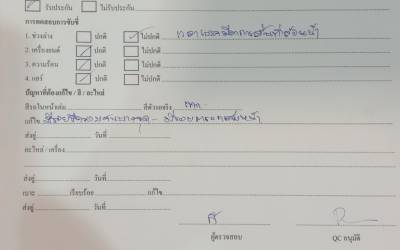 รับประกัน ไม่รับประกัน
การทดสอบการขับขี่
1. ช่วงล่าง ปกติ ไม่ปกติ
2. เครื่องยนต์ ปกติ ไม่ปกติ
3. ความร้อน ปกติ ไม่ปกติ
4. แอร์ ปกติ ไม่ปกติ
ปัญหาที่ต้องแก้ไข / สี / อะไหล่
สีรถในหน้าเล่ม สีตัวรถจริง เทา
แก้ไข
ส่งอู่ วันที่
อะไหล่ / เครื่อง
ส่งอู่ วันที่
เบาะ เรียบร้อย แก้ไข
ผู้ตรวจสอบ QC อนุมัติ